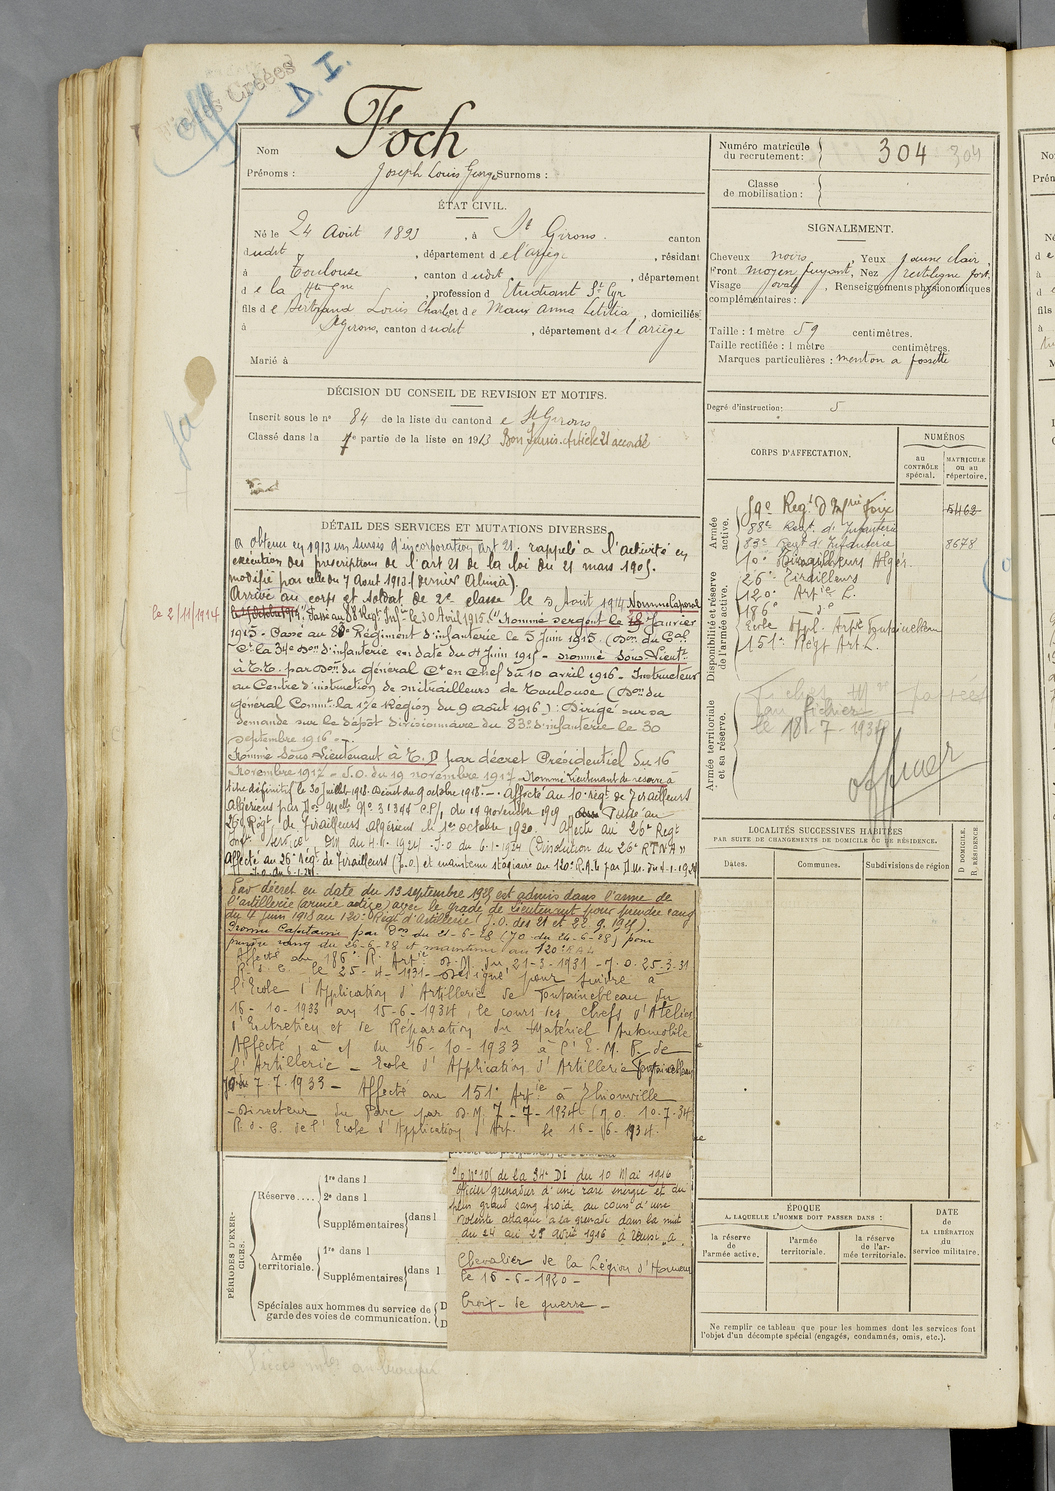 D. I.
Foch
Nom
Prénoms : Joseph Louis George Surnoms :
ÉTAT CIVIL.
Né le 24 Août 1893, à St Girons. canton
dudit, département de l'ariège, résidant
à Toulouse, canton dudit, département
de la Hte Gne, profession d Etudiant St Cyr
fils de Bertrand Louis Charles et de Maux Anna Létitia, domiciliés
à St Girons, canton dudit, département de l'ariège
Marié à
DÉCISION DU CONSEIL DE REVISION ET MOTIFS.
Inscrit sous le n° 84 de la liste du canton de St Girons
Classé dans la 7e partie de la liste en 1913 Bon Sursis. Article 21 accordé
DÉTAIL DES SERVICES ET MUTATIONS DIVERSES.
A obtenu en 1913 un sursis d'incorporation art 21. rappelé à l'activité en
exécution des prescriptions de l'art 21 de la loi du 21 mars 1905.
modifié par celle du 7 Aout 1913. (dernier Alinéa).
Arrivé au corps et soldat de 2e classe le 3 Août 1914. Nommé Caporal
le 2/11/1914
Passé au 88 Regt Infie le 30 Avril 1915. Nommé sergent le Janvier
1915. Passé au 83e Régiment d'infanterie le 5 Juin 1915 (Don du Gal
Ct la 34e Don d'infanterie en date du 4 Juin 1915 - nommé Sous Lieutt
à T.T. par Don du général Ct en chef du 10 avril 1916 - Instructeur
au Centre d'instruction de mitrailleurs de Toulouse (Don du
général Commt la 17e Région du 9 août 1916) : Dirigé sur sa
demande sur le dépôt divisionnaire du 83e d'infanterie le 30
septembre 1916 -
Nommé Sous Lieutenant à T.D par décret Présidentiel du 16
Novembre 1917 - J.O. du 19 novembre 1917 - Nommé Lieutenant de reserve à
titre définitif le 30 Juillet 1918. Décret du 9 octobre 1918. - Affecté au 10e régt de Tirailleurs
Algériens par Don Mlle No 31395 C.P/1, du 19 novembre 1919 Passé au
26e Régt, de Tirailleurs Algériens le 1er octobre 1920. Affecté au 26e Regt
DM du 4.11.1924 J.O du 6-1-1924 (Dissolution du 26e RTNA)
Affecté au 26e Régt de Tirailleurs (J.O) et maintenu stagiaire au 120e R.A.L par D.M. du 4-1-1924
Par décret en date du 13 septembre 1925 est admis dans l'arme de
l'artillerie (armée active) avec le grade de Lieutenant pour prendre rang
du 4 Juin 1918 au 120e Régt d'Artillerie) J.O. des 21 et 22.9.1925).
Promu Capitaine par Don du 21-6-28 (J.O. du 24-6-28) pour
prendre rang du 25-6-28 et maintenu au 120e R.A.L
Affecté au 186e R. Artie D.M du 21-3-1931 - J.O. 25-3-31
R. d. C. le 25-4-1931 - Désigné pour suivre à
l'Ecole d'Application d'Artillerie de Fontainebleau du
16-10-1933 au 15-6-1934, le cours des Chefs d'Atelier
d'Entretien et de Réparation du Matériel Automobile
Affecté, à cf du 16-10-1933 à l'E.M.P. de
l'Artillerie - Ecole d'Application d'Artillerie Fontainebleau
JO du 7.7.1933 - Affecté au 151e Artie à Thionville
- Directeur du Parc par D.M. 7-7-1934 (J.O. 10.7.34)
R. d. C. de l'Ecole d'Application d'Art. le 15-6-1934.
PÉRIODES D'EXERCICES.
Réserve....
1re dans l
2e dans l
Supplémentaires dans l
Armée territoriale.
1re dans l
Supplémentaires dans l
Spéciales aux hommes du service de
garde des voies de communication.
o/o No 105 de la 34e DI du 10 Mai 1916
Officier grenadier d'une rare energie et du
plus grand sang froid, au cours d'une
violente attaque à la grenade dans la nuit
du 24 au 25 avril 1916 à réussi a
Chevalier de la Légion d'Honneur
le 16-6-1920 -
Croix de guerre -
Numéro matricule
du recrutement : 304 304
Classe
de mobilisation :
SIGNALEMENT.
Cheveux noirs, Yeux jaune clair,
Front moyen fuyant, Nez rectiligne fort.
Visage ovale, Renseignements physionomiques
complémentaires :
Taille : 1 mètre 59 centimètres.
Taille rectifiée : 1 mètre centimètres.
Marques particulières : menton a fossette
Degré d'instruction : 5
CORPS D'AFFECTATION.
NUMÉROS
au
CONTRÔLE
spécial.
MATRICULE
ou au
répertoire.
Armée active.
Disponibilité et réserve de l'armée active.
Armée territoriale et sa réserve.
59e Regt D'Infrie Foix 5462
88e Regt. d'Infanterie
83e Regt d'Infanterie 8678
10e Tirailleurs Algér.
26e Tirailleurs
120e Artie L.
186e do
Ecole Appl. Artie Fontainebleau
151e Regt Art L.
au fichier
le 18-7-1934
officier
LOCALITÉS SUCCESSIVES HABITÉES
PAR SUITE DE CHANGEMENTS DE DOMICILE OU DE RÉSIDENCE.
Dates.
Communes.
Subdivisions de région
D DOMICILE.
R RÉSIDENCE.
ÉPOQUE
A LAQUELLE L'HOMME DOIT PASSER DANS :
la réserve
de
l'armée active.
l'armée
territoriale.
la réserve
de l'ar-
mée territoriale.
DATE
de
LA LIBÉRATION
du
service militaire.
Ne remplir ce tableau que pour les hommes dont les services font
l'objet d'un décompte spécial (engagés, condamnés, omis, etc.).